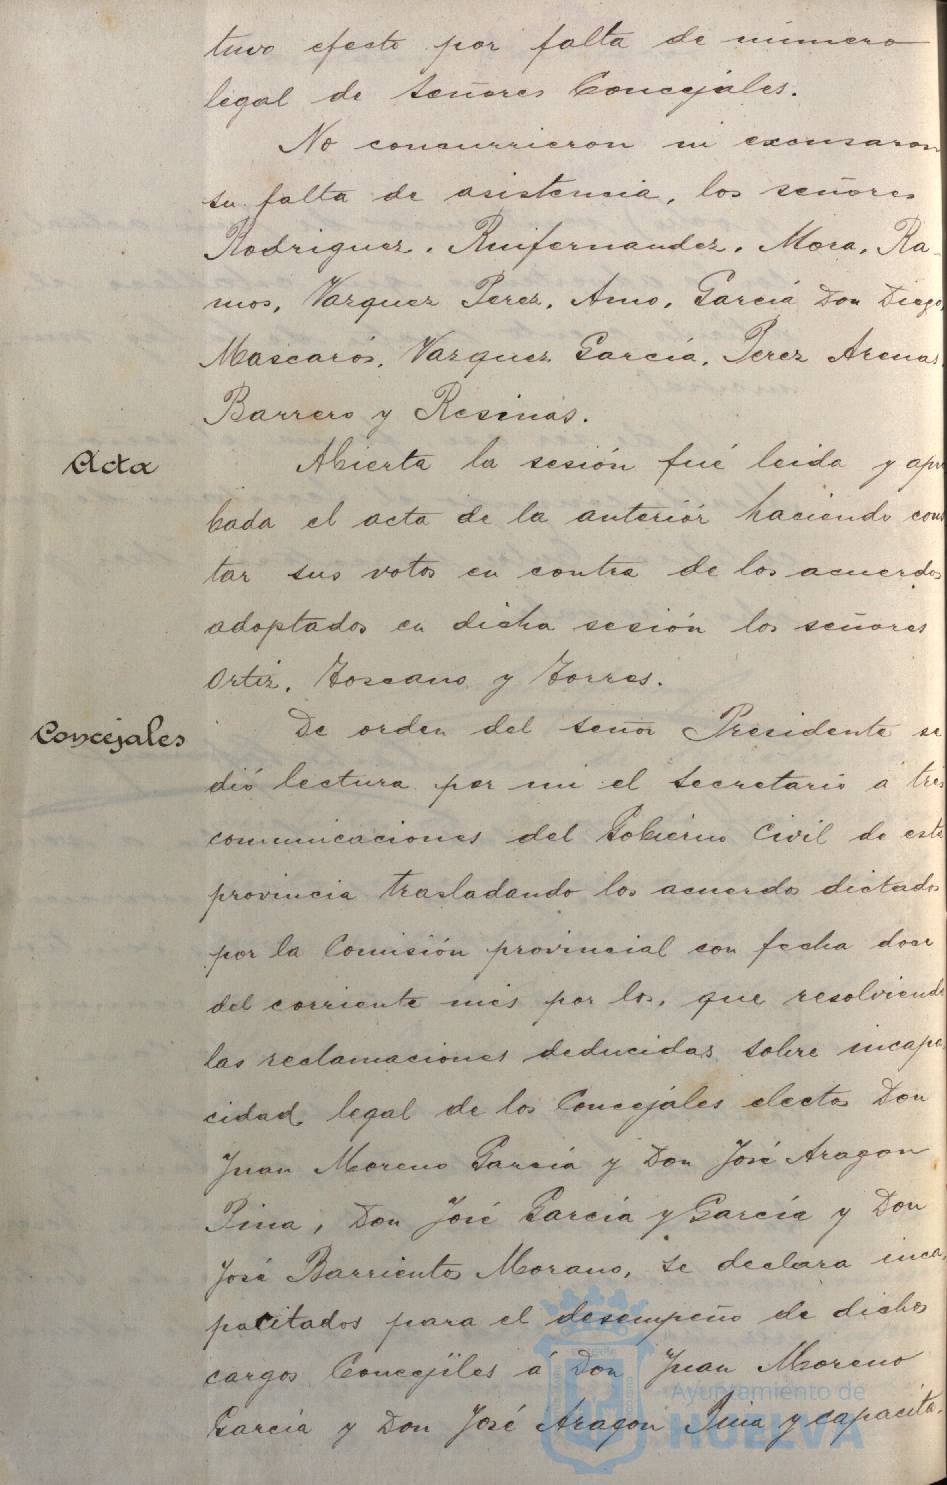 tuvo efecto por falta de número
legal de Señores Concejales.
No concurrieron ni excusaron
su falta de asistencia, los señores
Rodriguez, Ruifernandez, Mora, Ra-
mos, Vazquez Perez, Amo, García Don Diego,
Mascarós, Vazquez García, Perez Arenas,
Barrero y Resinas.
Acta
Abierta la sesión fué leida y apro
bada el acta de la anteriór haciendo cons
tar sus votos en contra de los acuerdos
adoptados en dicha sesión los señores
Ortiz, Toscano y Torres.
Concejales
De orden del señor Presidente se
dió lectura por mi el Secretario á tres
comunicaciones del Gobierno Civil de esta
provincia trasladando los acuerdos dictados
por la Comisión provincial con fecha doce
del corriente mes por los, que resolviendo
las reclamaciones deducidas sobre incapa
cidad legal de los Concejales electos Don
Juan Moreno García y Don José Aragon
Pina, Don José García y García y Don
José Barrientos Morano, se declara inca,
pacitados para el desempeño de dichos
cargos Concejiles á Don Juan Moreno
García y Don José Aragon Pina y capacita-
Ayuntamiento de
HUELVA